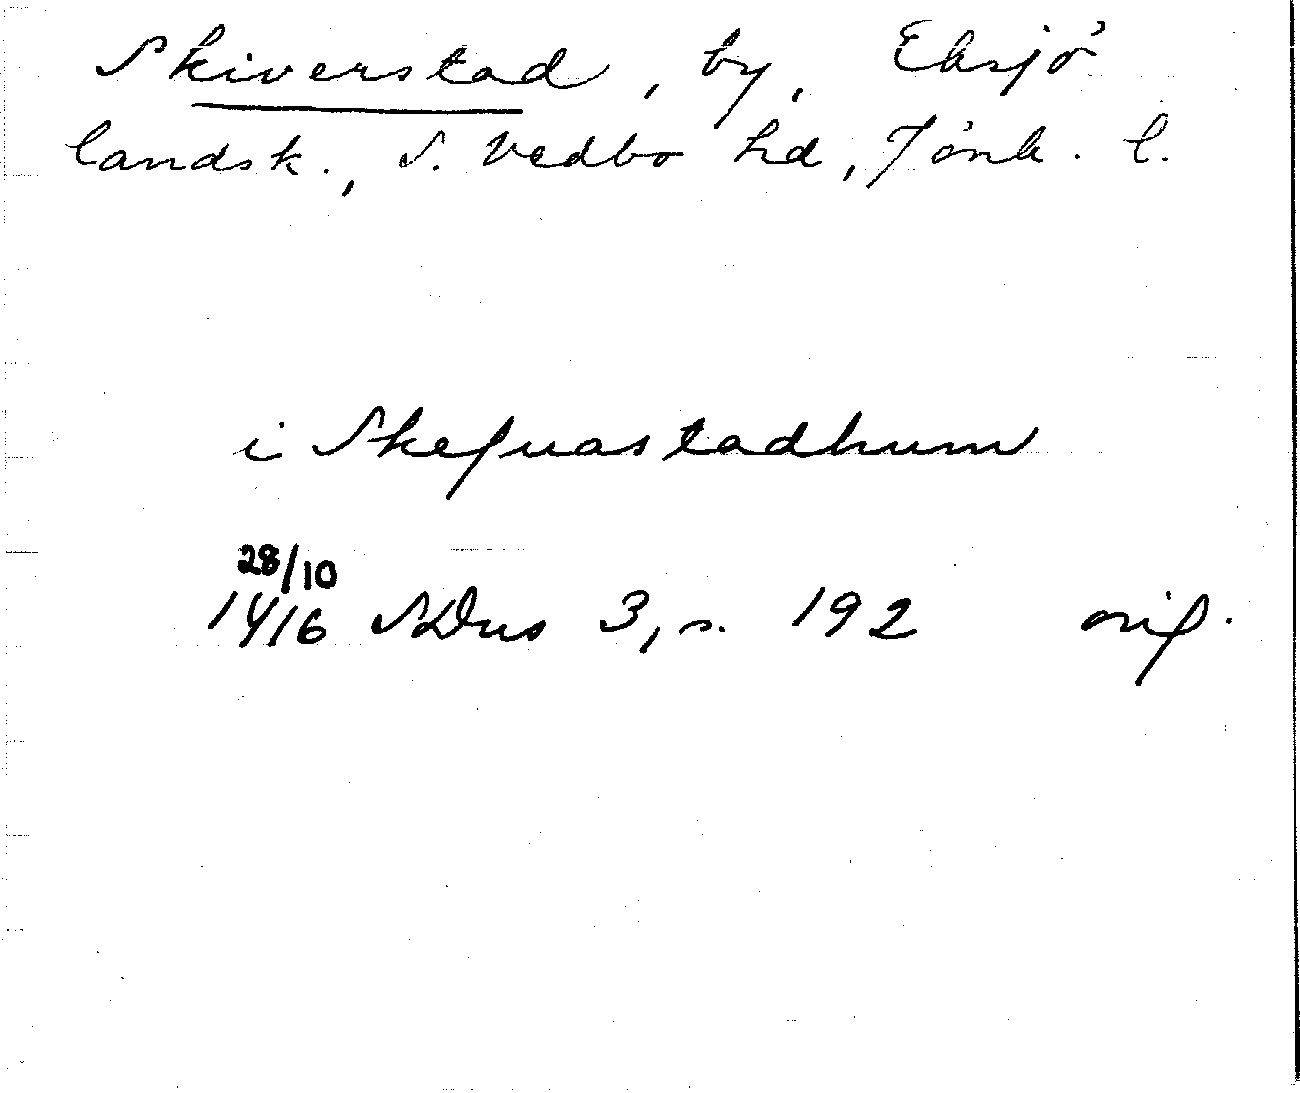 Skiverstad, by, Eksjö
landsk., S. Vedbo hd, Jönk. l.
i Skefuastadhum
28/10
1416 SDns 3, s. 192 orig.